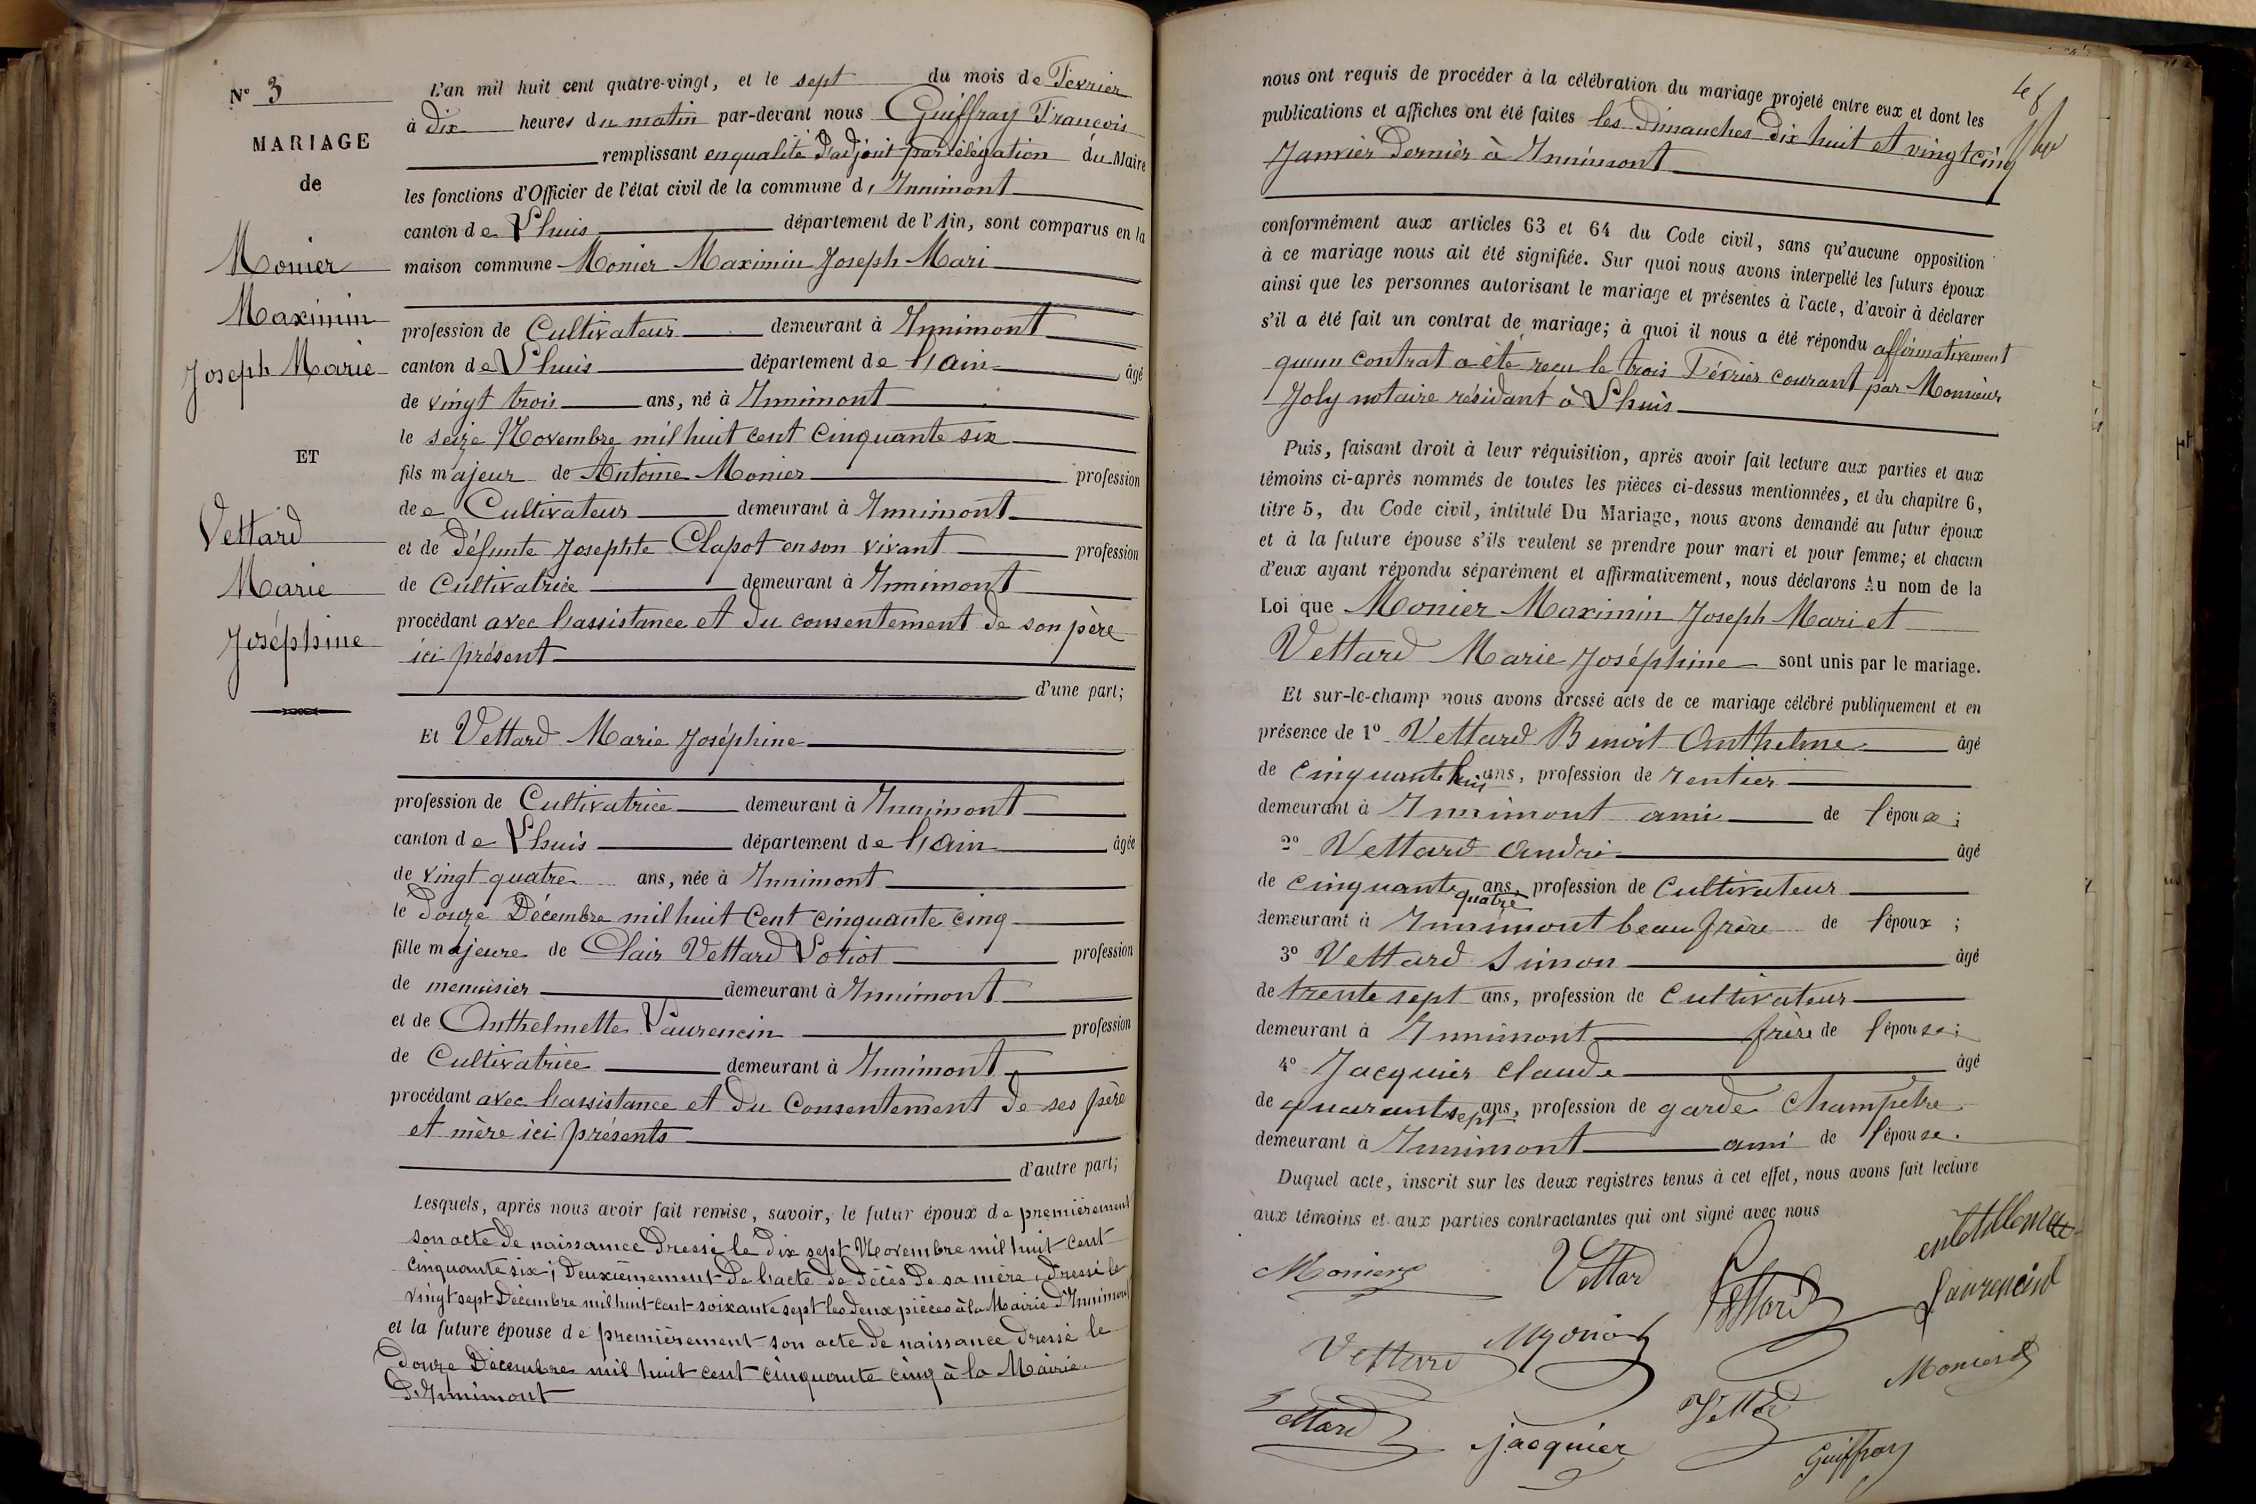 N° 3
MARIAGE
de
Monier
Maximin
Joseph Marie
ET
Vettard
Marie
Joséphine
L'an mil huit cent quatre-vingt, et le sept du mois de Février
à dix heures du matin par-devant nous Guiffray François
remplissant en qualité d'adjoint par délégation du Maire
les fonctions d'Officier de l'état civil de la commune d'Innimont
canton de Lhuis département de l'Ain, sont comparus en la
maison commune Monier Maximin Joseph Mari
profession de Cultivateur demeurant à Innimont
canton de Lhuis département de l'ain âgé
de vingt trois ans, né à Innimont
le seize Novembre mil huit cent cinquante six
fils majeur de Antoine Monier profession
de Cultivateur demeurant à Innimont
et de défunte Josephte Clapot en son vivant profession
de Cultivatrice demeurant à Innimont
procédant avec l'assistance et du consentement de son père
ici présent
d'une part;
Et Vettard Marie Joséphine
profession de Cultivatrice demeurant à Innimont
canton de Lhuis département de l'ain âgée
de vingt quatre ans, née à Innimont
le douze Décembre mil huit Cent cinquante cinq
fille majeure de Clair Vettard Loriot profession
de menuisier demeurant à Innimont
et de Anthelmette Laurencin profession
de Cultivatrice demeurant à Innimont
procédant avec l'assistance et du Consentement de ses père
et mère ici présents
d'autre part;
Lesquels, après nous avoir fait remise, savoir, le futur époux de premièrement
son acte de naissance dressé le dix sept Novembre mil huit cent
cinquante six; Deuxièmement de l'acte de décès de sa mère, dressé le
vingt sept Décembre mil huit cent soixante sept les deux pièces à la Mairie d'Innimont
et la future épouse de premièrement son acte de naissance dressé le
douze Décembre mil huit cent cinquante cinq à la Mairie
d'Innimont
nous ont requis de procéder à la célébration du mariage projeté entre eux et dont les
publications et affiches ont été faites les Dimanches dix huit et vingt cinq
Janvier dernier à Innimont
conformément aux articles 63 et 64 du Code civil, sans qu'aucune opposition
à ce mariage nous ait été signifiée. Sur quoi nous avons interpellé les futurs époux
ainsi que les personnes autorisant le mariage et présentes à l'acte, d'avoir à déclarer
s'il a été fait un contrat de mariage; à quoi il nous a été répondu affirmativement
qu'un contrat a été reçu le trois Février courant par Monsieur
Joly notaire résidant à Lhuis
Puis, faisant droit à leur réquisition, après avoir fait lecture aux parties et aux
témoins ci-après nommés de toutes les pièces ci-dessus mentionnées, et du chapitre 6,
titre 5, du Code civil, intitulé Du Mariage, nous avons demandé au futur époux
et à la future épouse s'ils veulent se prendre pour mari et pour femme; et chacun
d'eux ayant répondu séparément et affirmativement, nous déclarons Au nom de la
Loi que Monier Maximin Joseph Mari et
Vettard Marie Joséphine sont unis par le mariage.
Et sur-le-champ nous avons dressé acte de ce mariage célébré publiquement et en
présence de 1° Vettard Benoit Anthelme âgé
de cinquante huit ans, profession de rentier
demeurant à Innimont ami de l'époux;
2° Vettard André âgé
de cinquante quatre ans, profession de Cultivateur
demeurant à Innimont beau frère de l'époux;
3° Vettard Simon âgé
de trente sept ans, profession de Cultivateur
demeurant à Innimont frère de l'épouse;
4° Jacquier Claude âgé
de quarante sept ans, profession de garde Champêtre
demeurant à Innimont ami de l'épouse.
Duquel acte, inscrit sur les deux registres tenus à cet effet, nous avons fait lecture
aux témoins et aux parties contractantes qui ont signé avec nous
Monier Vettar Vettard
Laurencin
Vettard Monier
Vettard Jacquier Vettard Guiffray